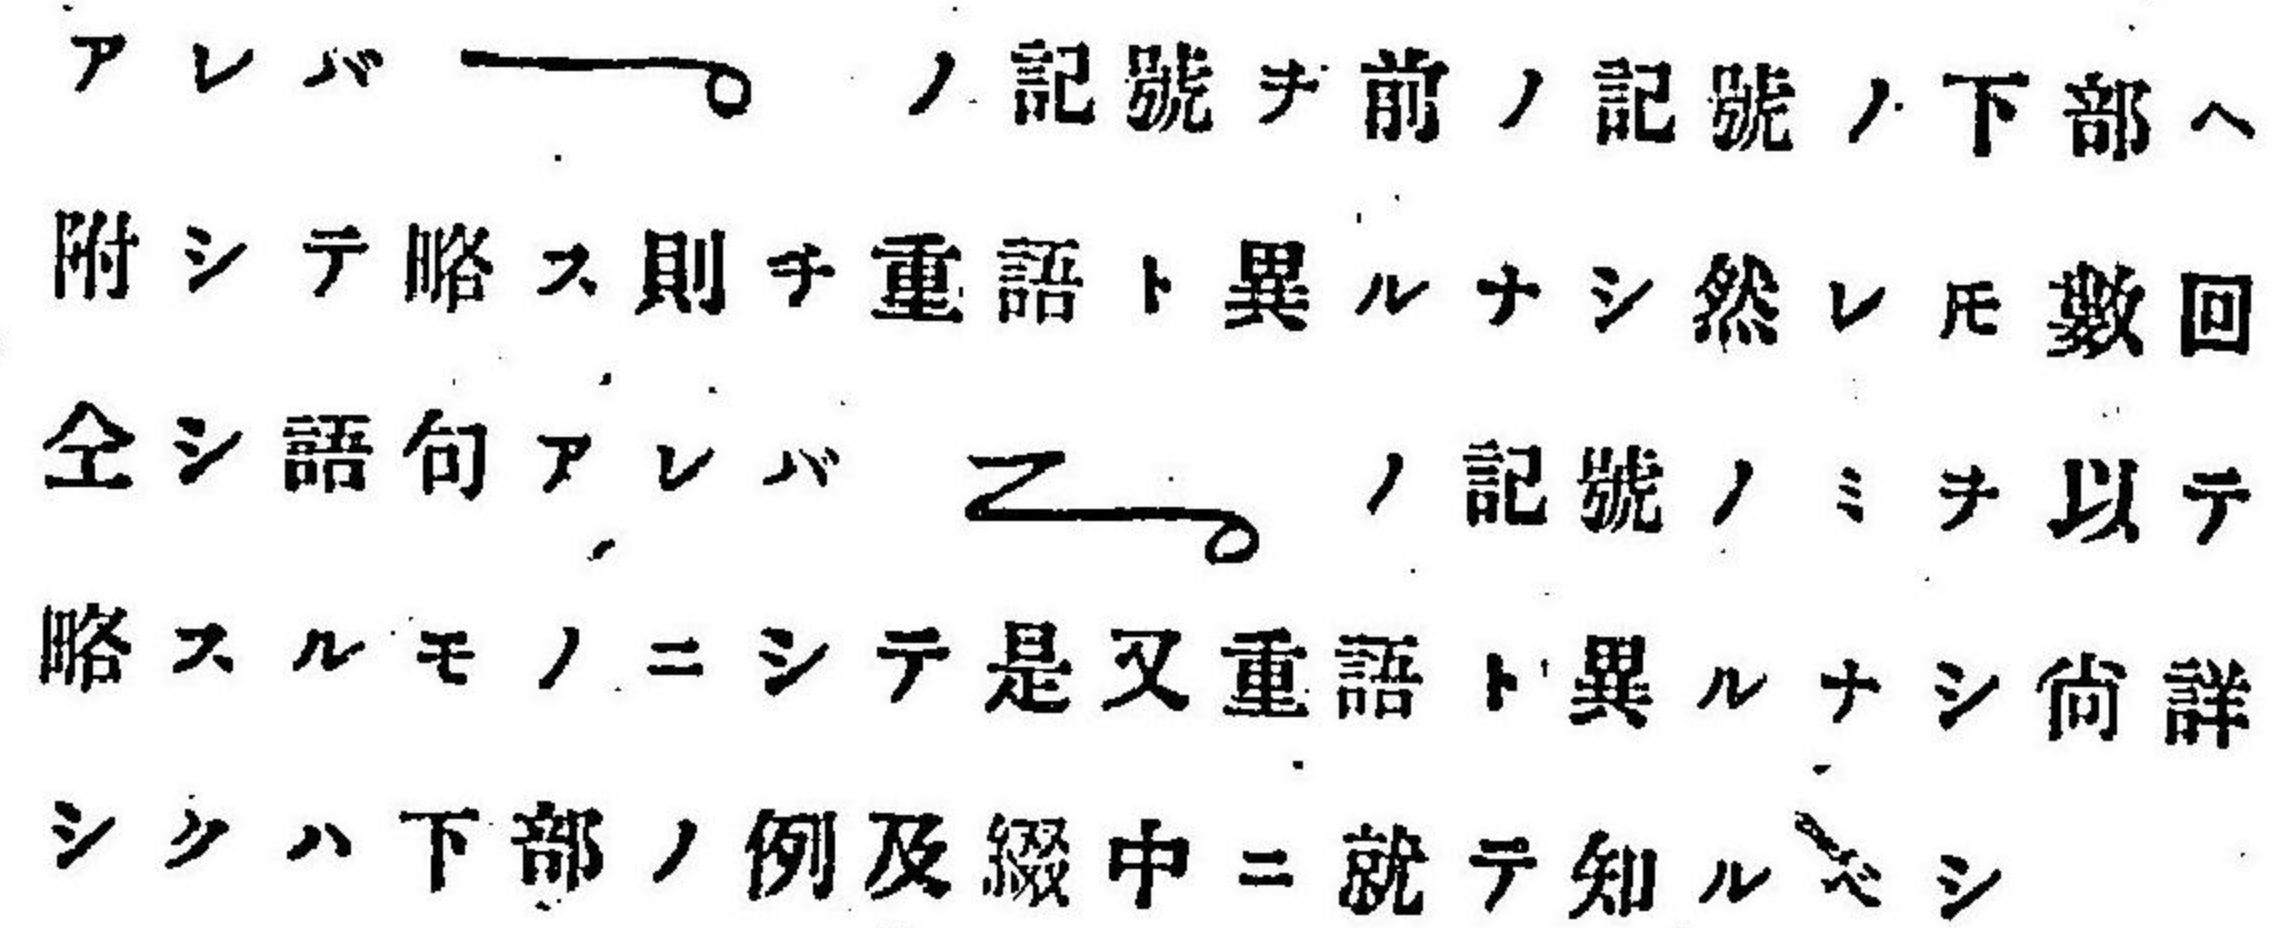 アレバ ノ記號ヲ前ノ記號ノ下部ヘ
附シテ略ス則チ重語ト異ルナシ然レ𪜈數回
仝シ語句アレバ ノ記號ノミヲ以テ
略スルモノニシテ是又重語ト異ルナシ尙詳
シクハ下部ノ例及綴中ニ就テ知ルベシ